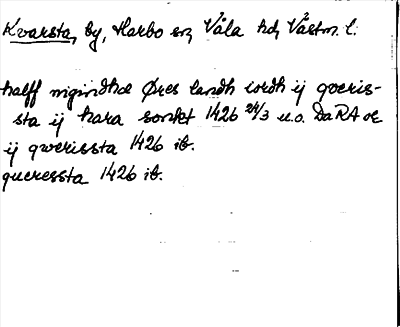 Kvarsta, by, Harbo sn, Våla hd, Västm. l.
halff nigindhæ Øres landh iordh ij qveris-
sta ij hara sonkt 1426 24/3 u.o. DaRA oc
ij qwerissta 1426 ib.
queressta 1426 ib.